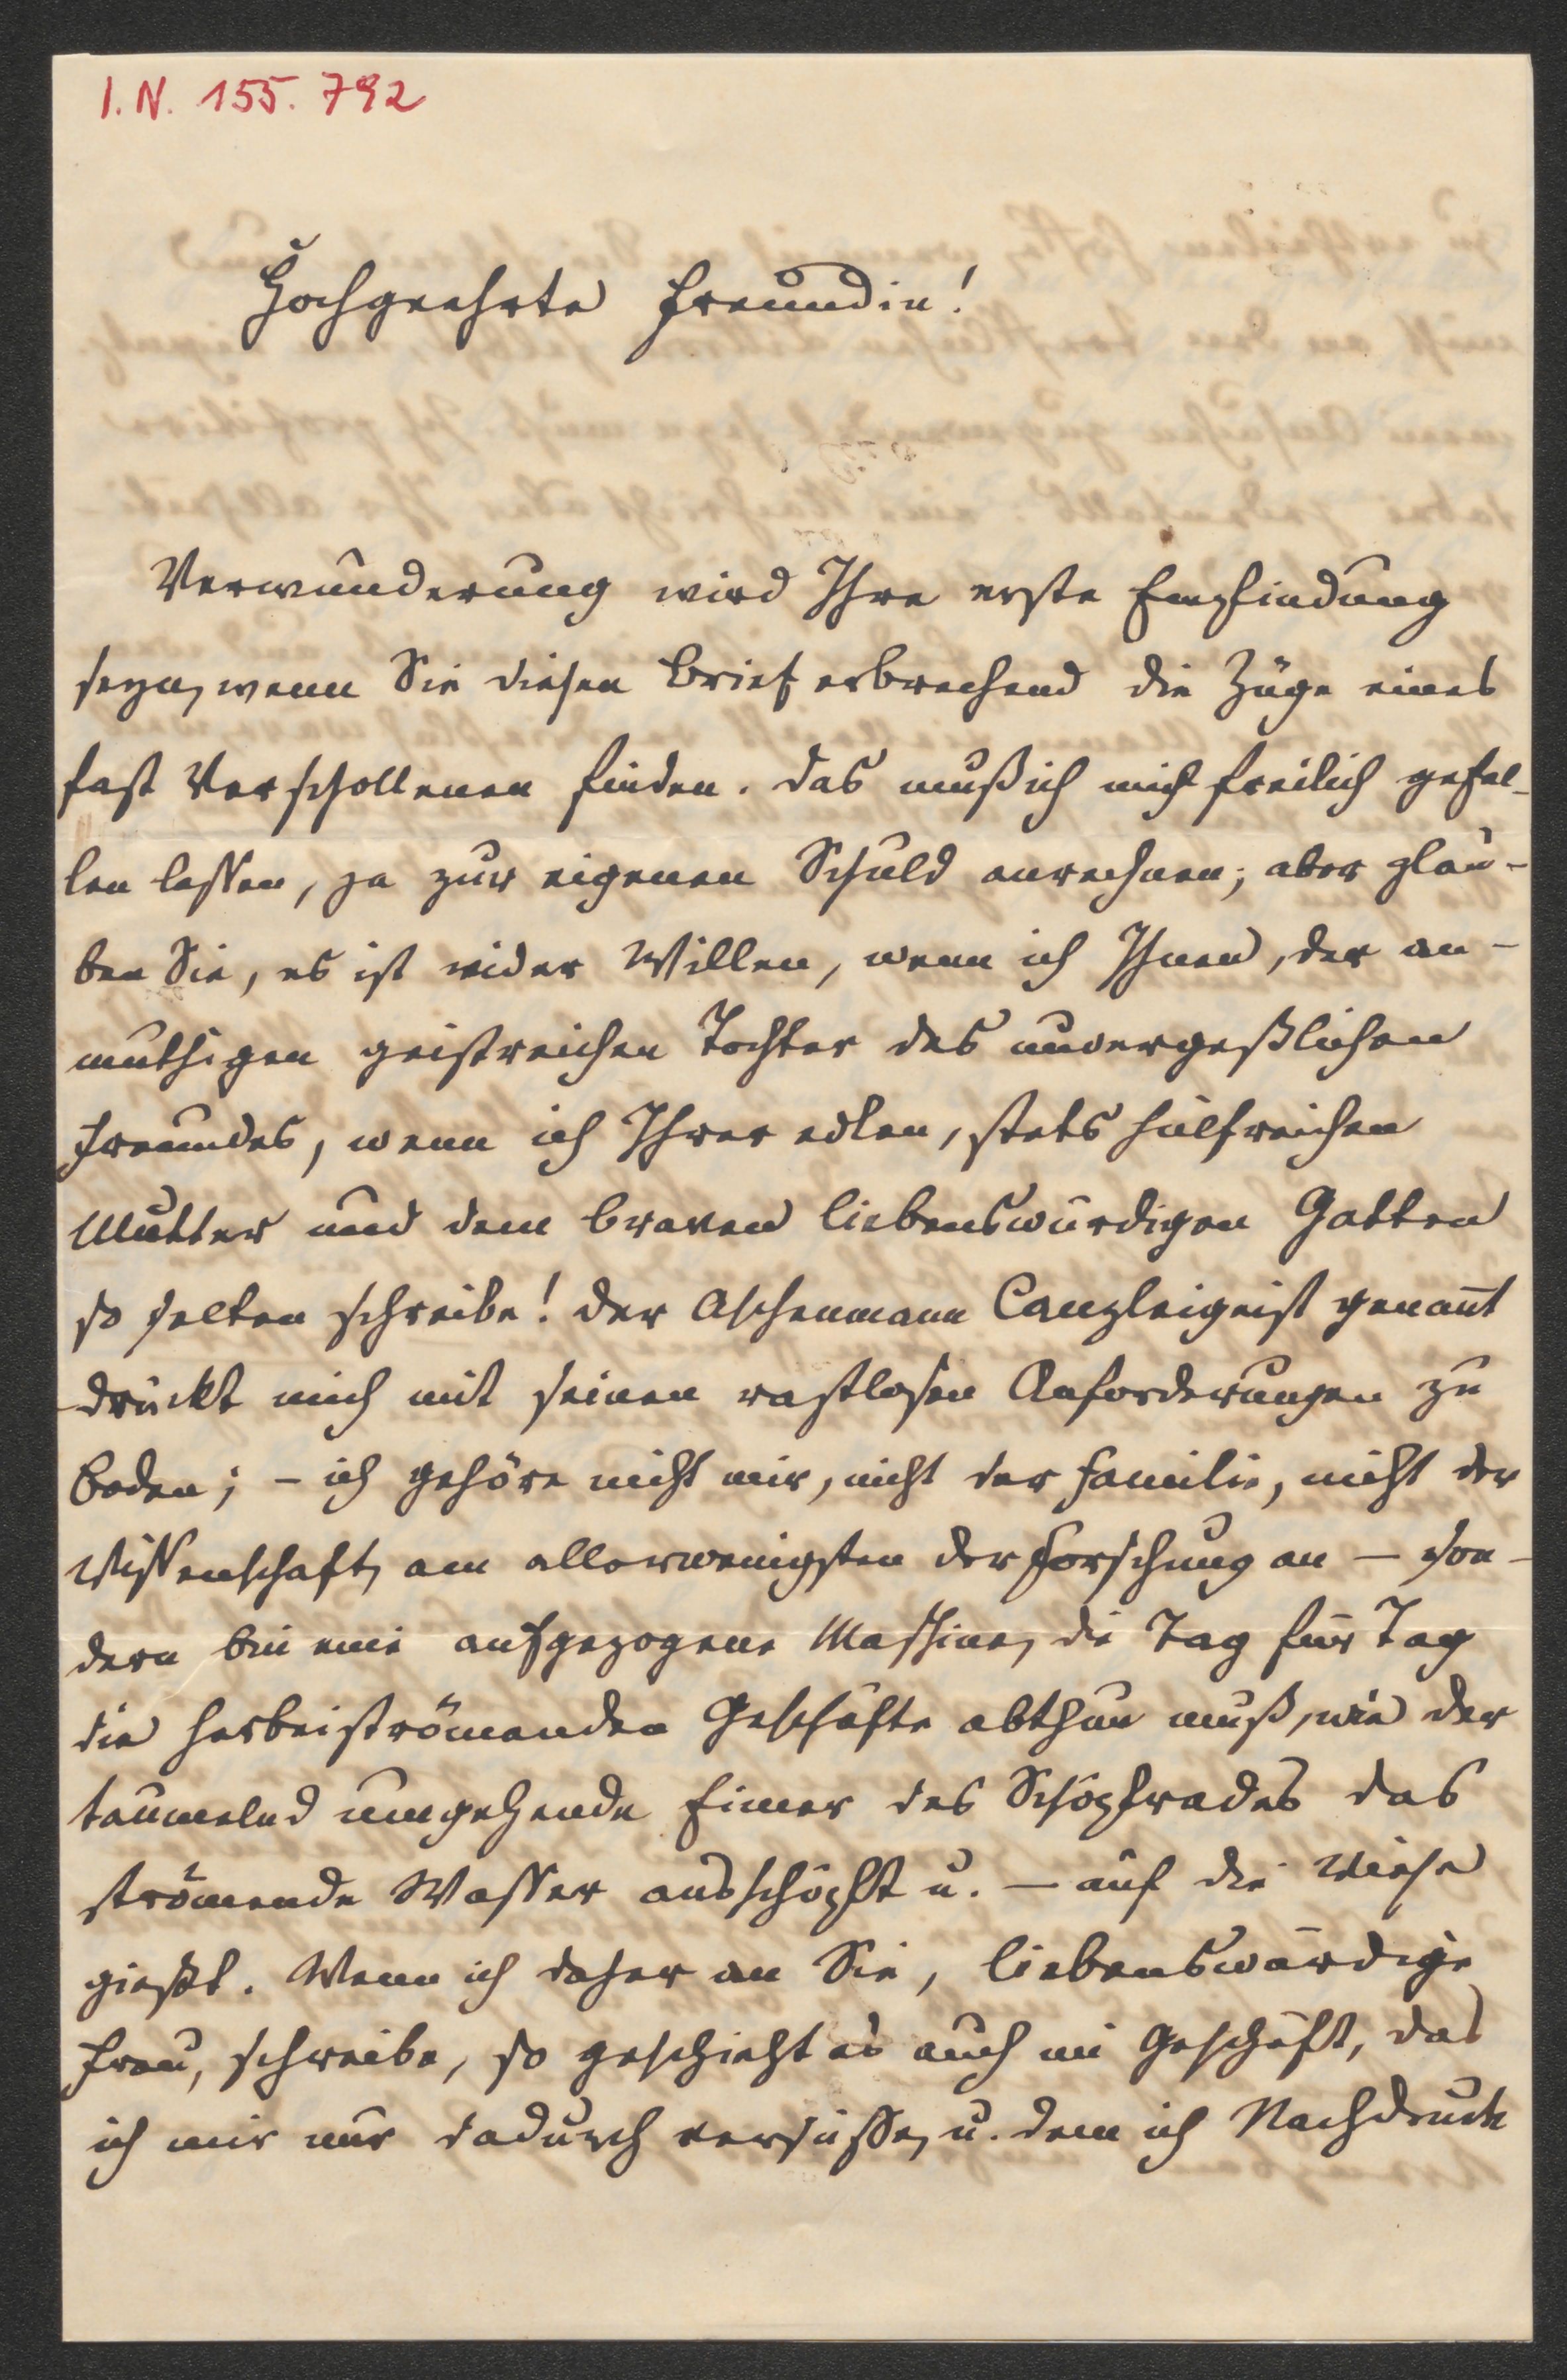 I. N. 155. 792
Hochgeehrte Freundin!
Verwunderung wird Ihre erste Empfindung
seyn, wenn Sie diesen Brief erbrechend die Züge eines
fast Verschollenen finden. Das muß ich mich freilich gefal-
len lassen, ja zur eigenen Schuld anrechnen; aber glau-
ben Sie, es ist wider Willen, wenn ich Ihnen, der an-
muthigen geistreichen Tochter des unvergeßlichen
Freundes, wenn ich Ihrer edlen, stets hülfreichen
Mutter und dem braven liebenswürdigen Gatten
so selten schreibe! Der Aschenmann Canzleigeist genannt
drückt mich mit seinen rastlosen Anforderungen zu
Boden; – ich gehöre nicht mir, nicht der Familie, nicht der
Wissenschaft, am allerwenigsten der Forschung an – son-
dern bin eine aufgezogene Maschine, die Tag für Tag
die herbeiströmenden Geschäfte abthun muß, wie der
taumelnd umgehende Eimer des Schöpfrades das
strömende Wasser ausschöpft u. – auf die Wiese
gießt. Wenn ich daher an Sie, liebenswürdige
Frau, schreibe, so geschieht es auch im Geschäft, das
ich mir nur dadurch versüsse, u. dem ich Nachdruck